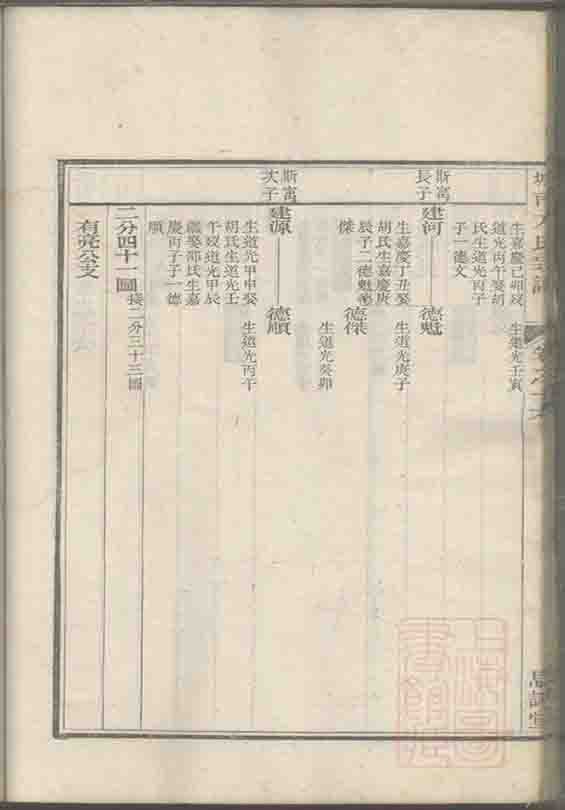 生嘉慶己卯歿
道光丙午娶胡
氏生道光丙子
子一德文
生道光壬寅
斯寓
長子
建河
德魁
生嘉慶丁丑娶
胡氏生嘉慶庚
辰子二德魁德
傑
生道光庚子
德傑
生道光癸卯
斯寓
次子
建源
德順
生道光甲申娶
胡氏生道光壬
午歿道光甲辰
繼娶邵氏生嘉
慶丙子子一德
順
生道光丙午
二分四十一圖
接二分三十三圖
有亮公支
上海圖
書館藏